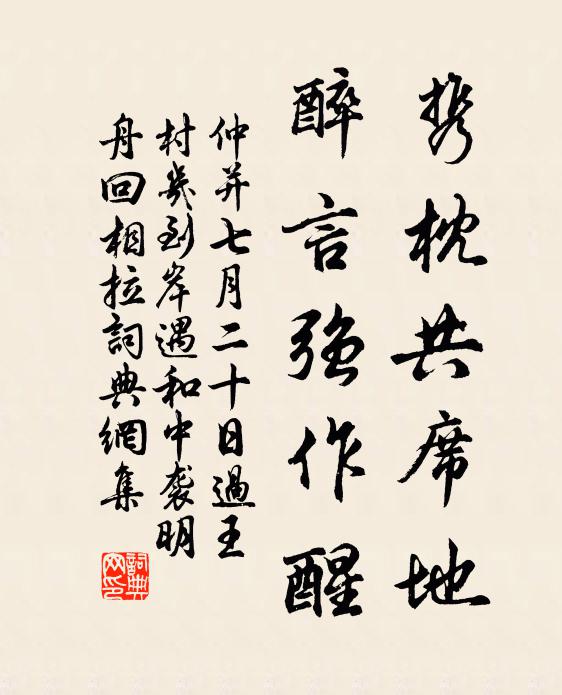 携枕共席地
醉言强作醒
仲并七月二十日過王
村幾到岸遇和中襲明
舟回相拉詞典網集
詞典
网印